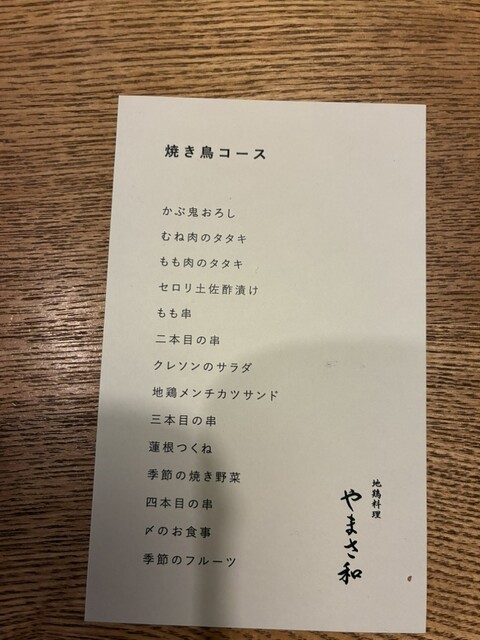 焼き鳥コース
かぶ鬼おろし
むね肉のタタキ
もも肉のタタキ
セロリ土佐酢漬け
もも串
二本目の串
クレソンのサラダ
地鶏メンチカツサンド
三本目の串
蓮根つくね
季節の焼き野菜
四本目の串
〆のお食事
季節のフルーツ
地鶏料理
やまさ和